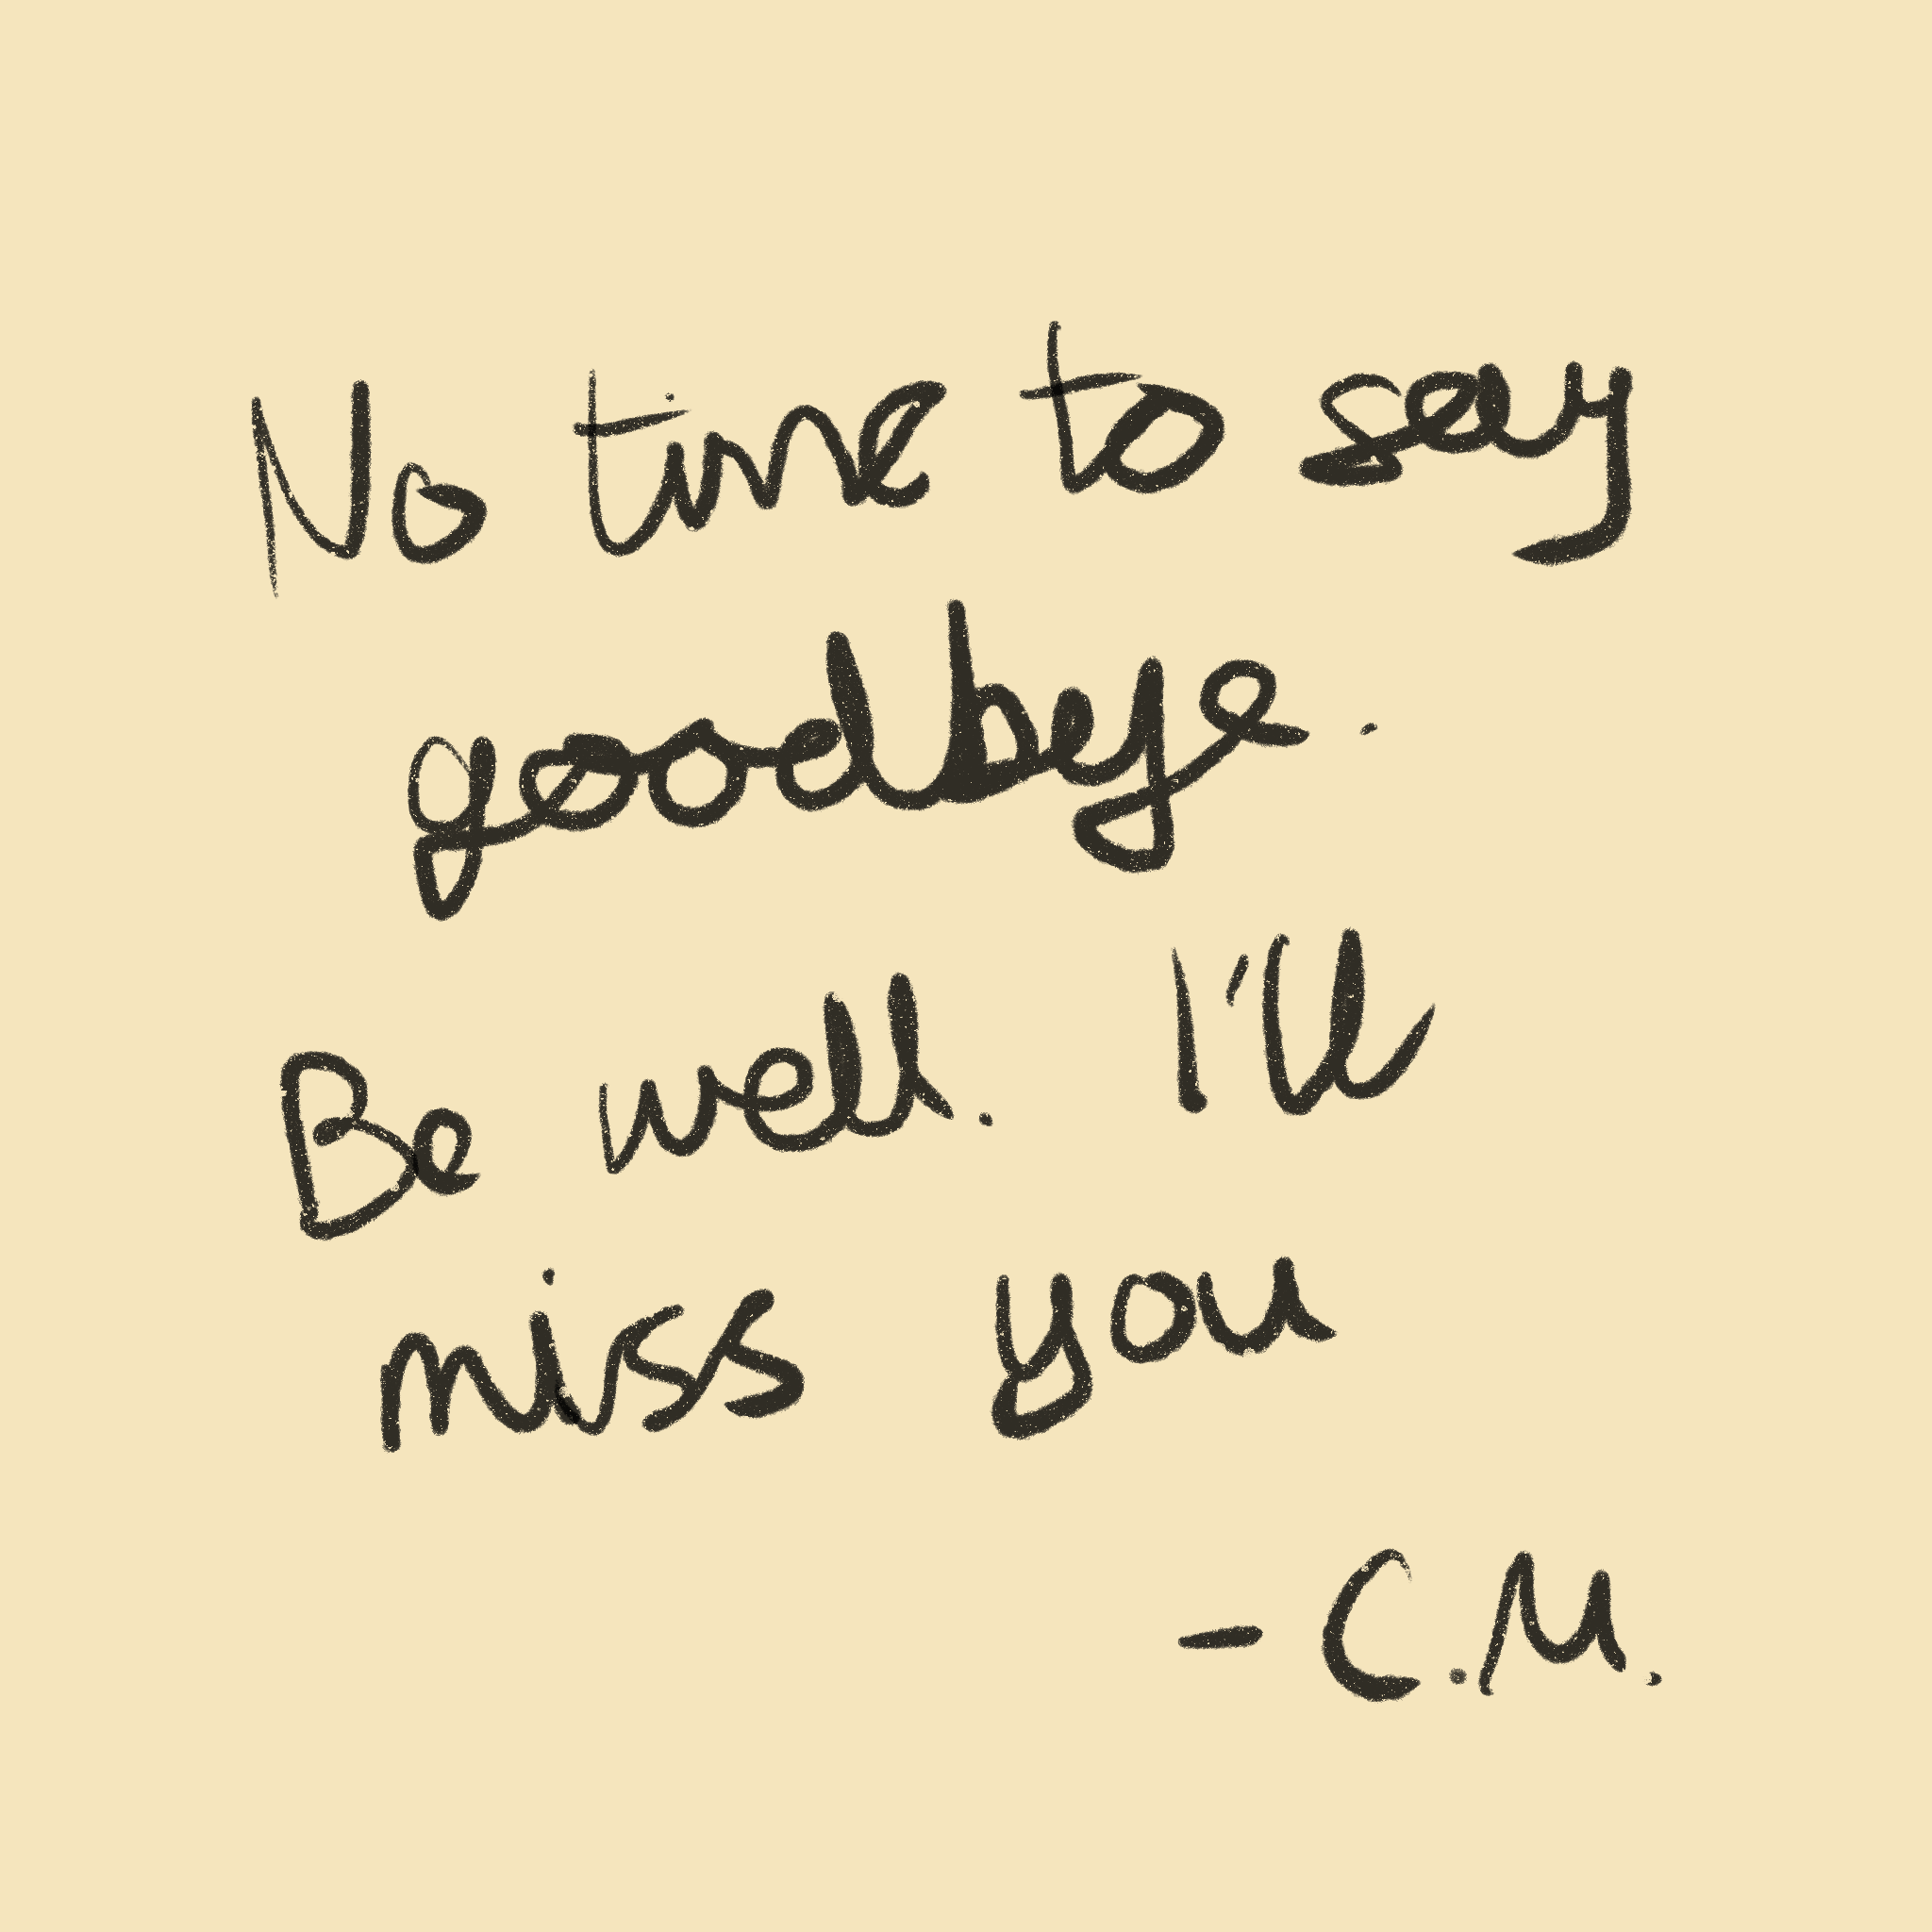 No time to say
goodbye.
Be well. I'll
miss you
- C.M.